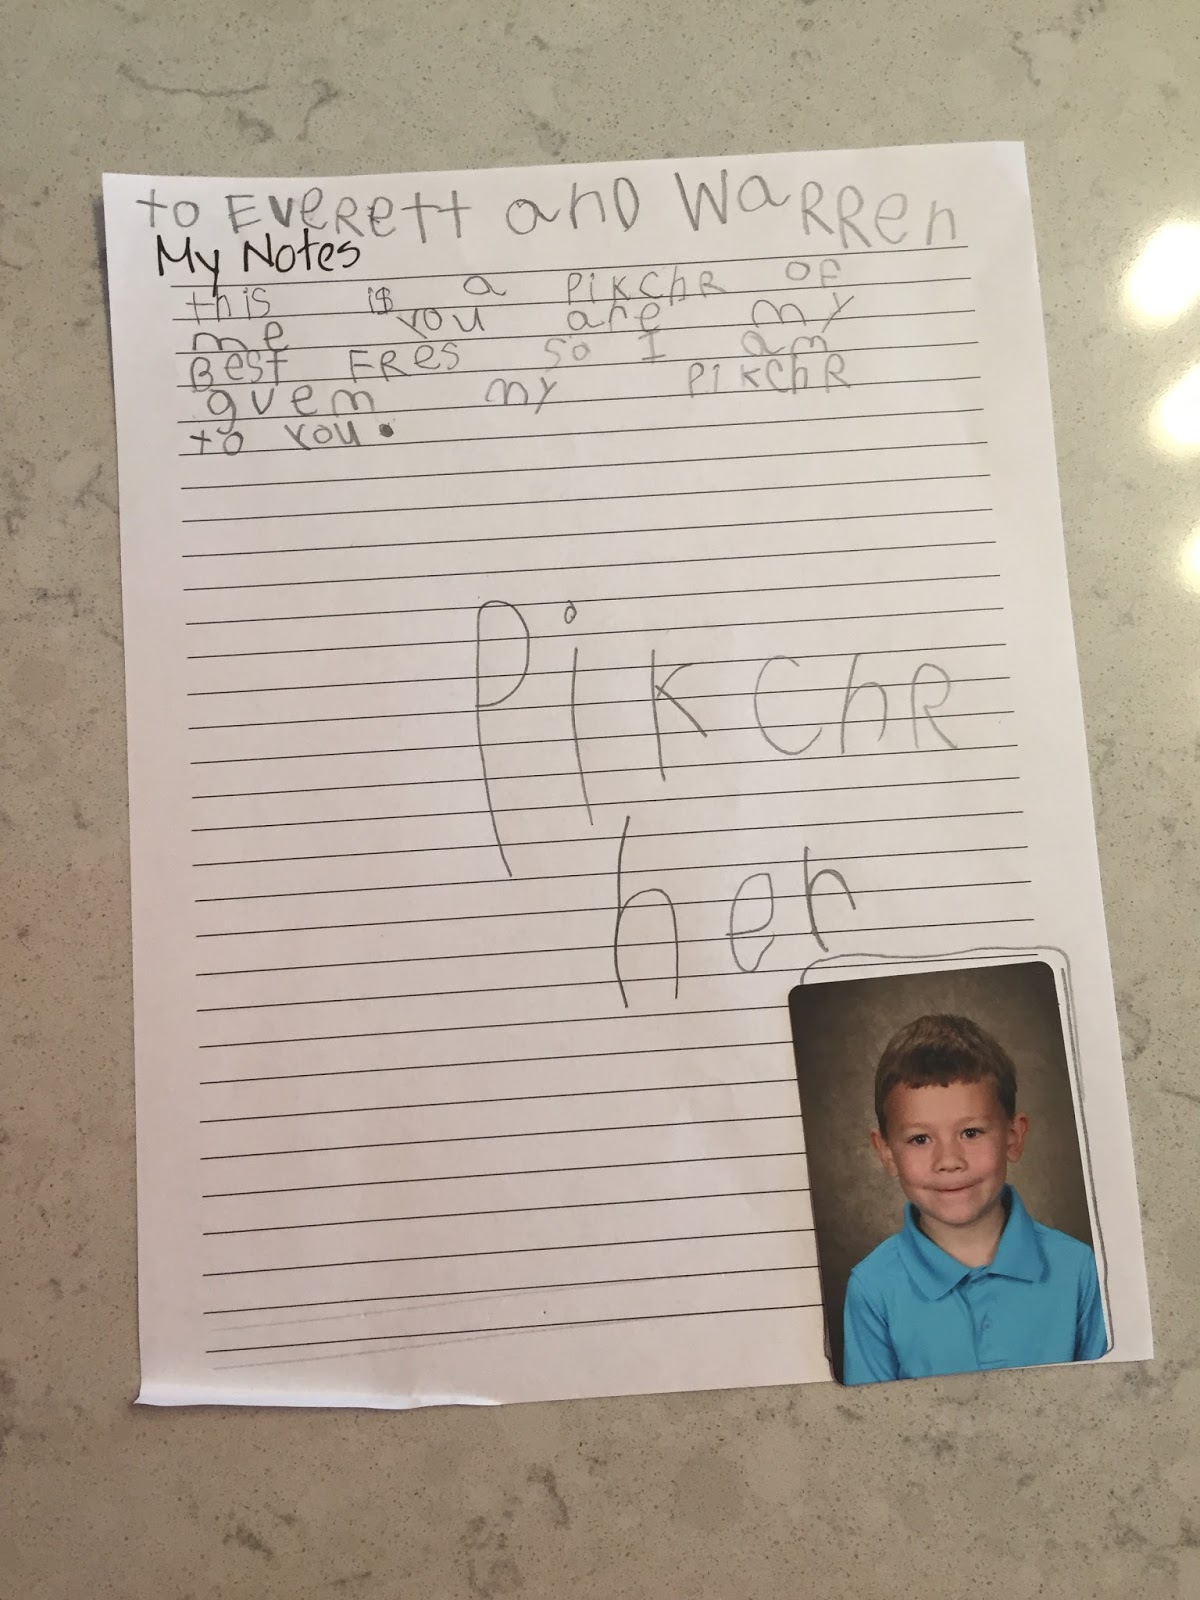 to EveRett anD WaRRen
My Notes
this is a PiKChR OF
me you are my
Best FRes so I am
gvem my PiKChR
to you.
PiKChR
her